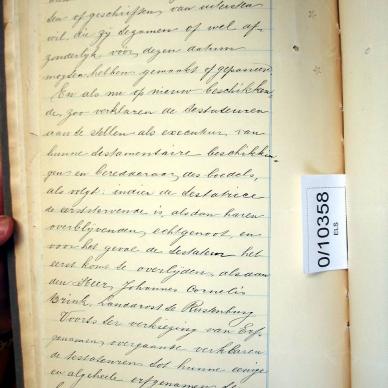 sen of geschriften, van uitersten
wil die zij tezamen of wel af-
zonderlijk voor dezen datum
mogten hebben gemaakt of gepasseerd.
En als nu op nieuw beschikken-
de, zoo verklaren de testateuren
aan te stellen als executeur van
hunne testamentaire beschikkin-
gen en beredderaar des boedels,
als volgt: indien de testatrice
de eerststervende is, alsdan haren
overblijvenden echtgenoot, en
voor het geval de testateur het
eerst kome te overlijden, alsdan
den Heer Johannes Cornelis
Brink, Landdrost te Rustenburg
Voorts ter verkiezing van Erf-
genamen overgaande verklaren
de testateuren tot hunne eenige
en algeheele erfgenamen te
0/10358
ELS